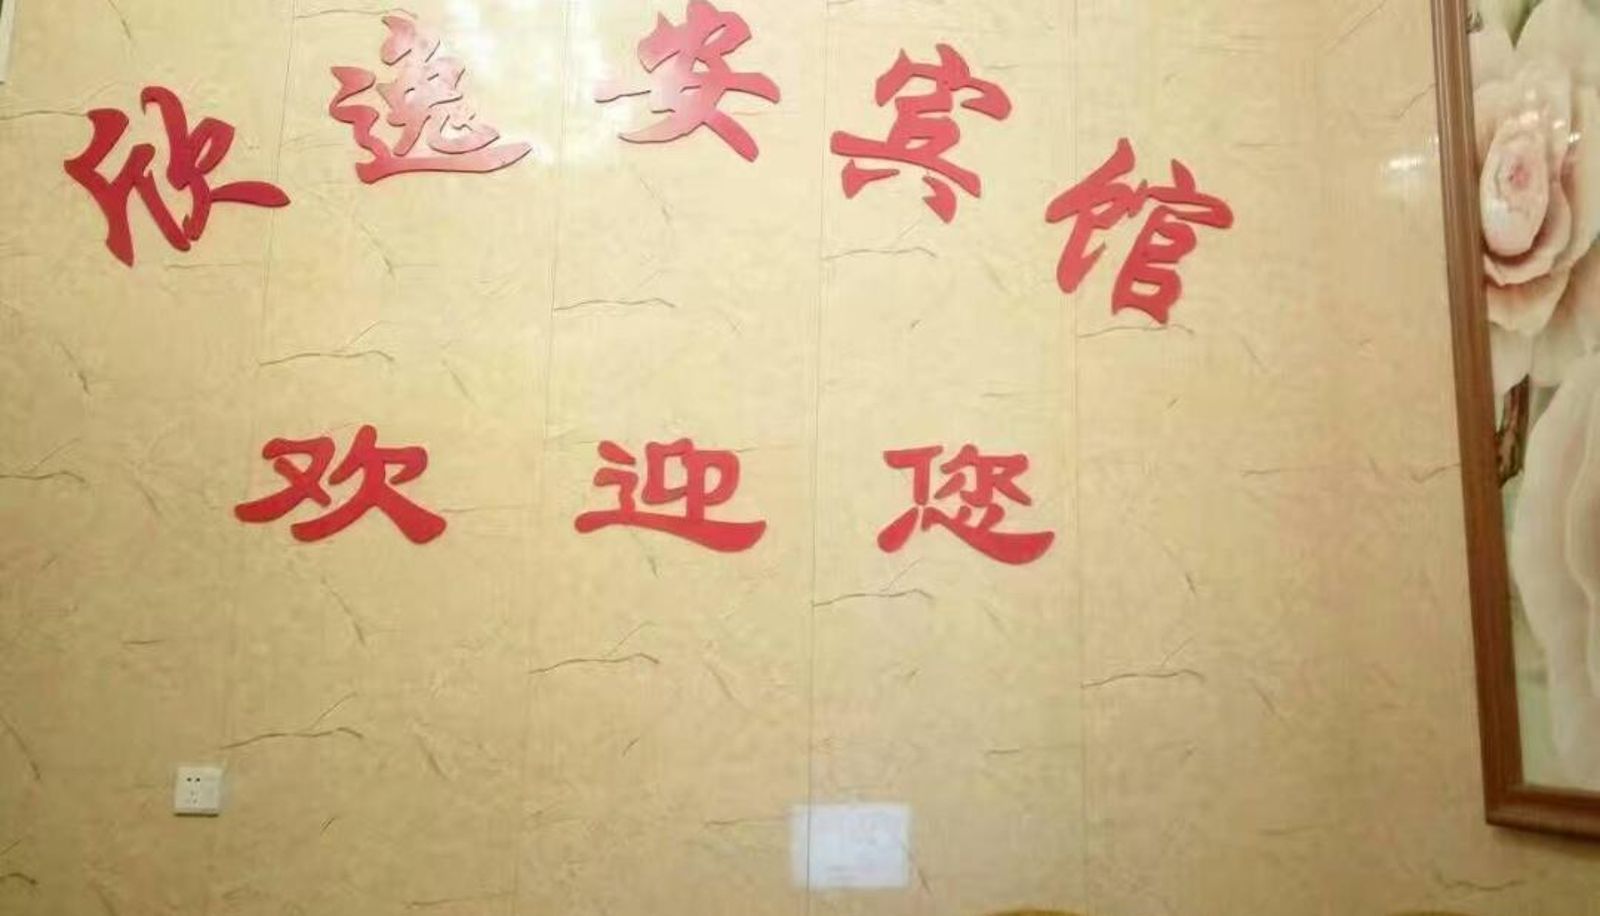 欣逸安宾馆
欢迎您